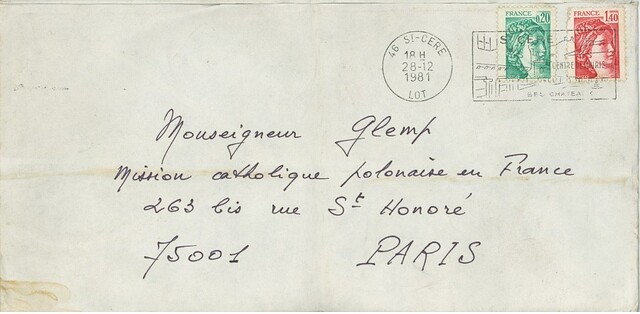 FRANCE 0,20
FRANCE 1,40
46 ST-CERE
18H
28-12
1981
LOT
ST CERE
SES CHATEAUX
Monseigneur Glemp
Mission catholique polonaise en France
263 bis rue St Honoré
75001 PARIS